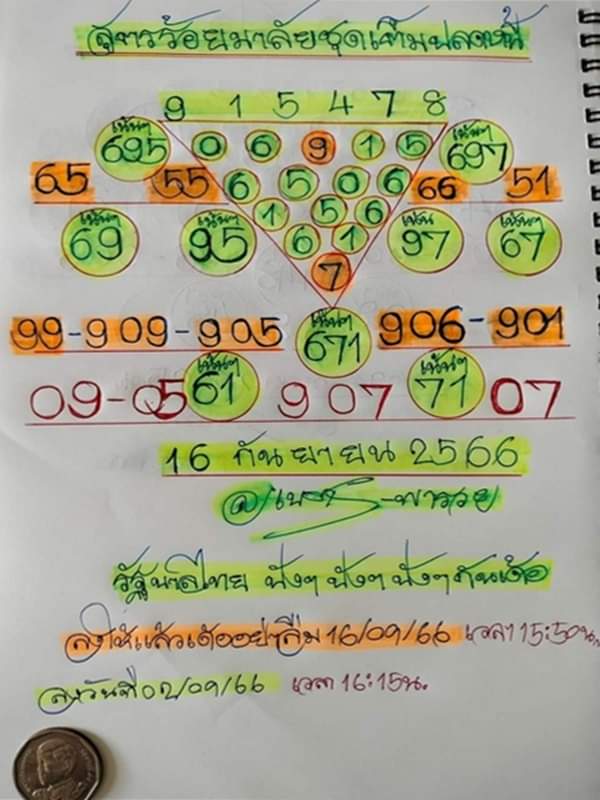 สูตรร้อยมาลัยชุดเต็มปลดหนี้
9 1 5 4 7 8
เน้นๆ 695 0 6 9 1 5 เน้นๆ 697
65 55 6 5 0 6 66 51
เน้นๆ 69 เน้นๆ 95 1 5 6 เน้น 97 เน้นๆ 67
6 1
7
99-909-905 เน้นๆ 671 906-901
09-05 เน้นๆ 61 907 เน้นๆ 71 07
16 กันยายน 2566
พารวย
รัฐบาลไทย ปังๆ ปังๆ ปังๆ กันเด้อ
ลงให้แล้วเด้ออย่าลืม 16/09/66 เวลา 15:50น.
ลงวันที่ 02/09/66 เวลา 16:15น.